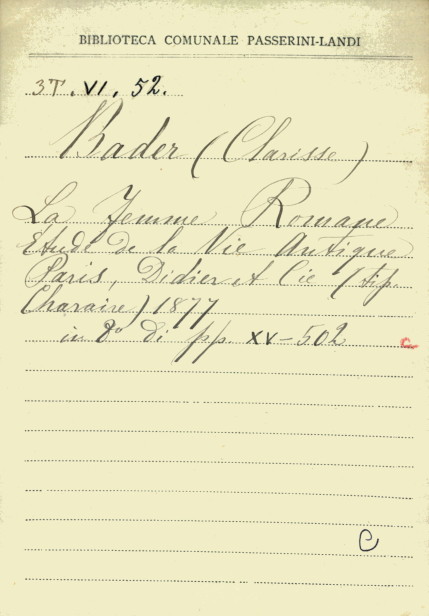 BIBLIOTECA COMUNALE PASSERINI-LANDI
3T. VI. 52.
Bader (Clarisse)
La Femme Romane
Etude de la Vie Antique
Paris, Didier et Cie (tip.
Charaire) 1877
in 8° di pp. XV-502
C
C